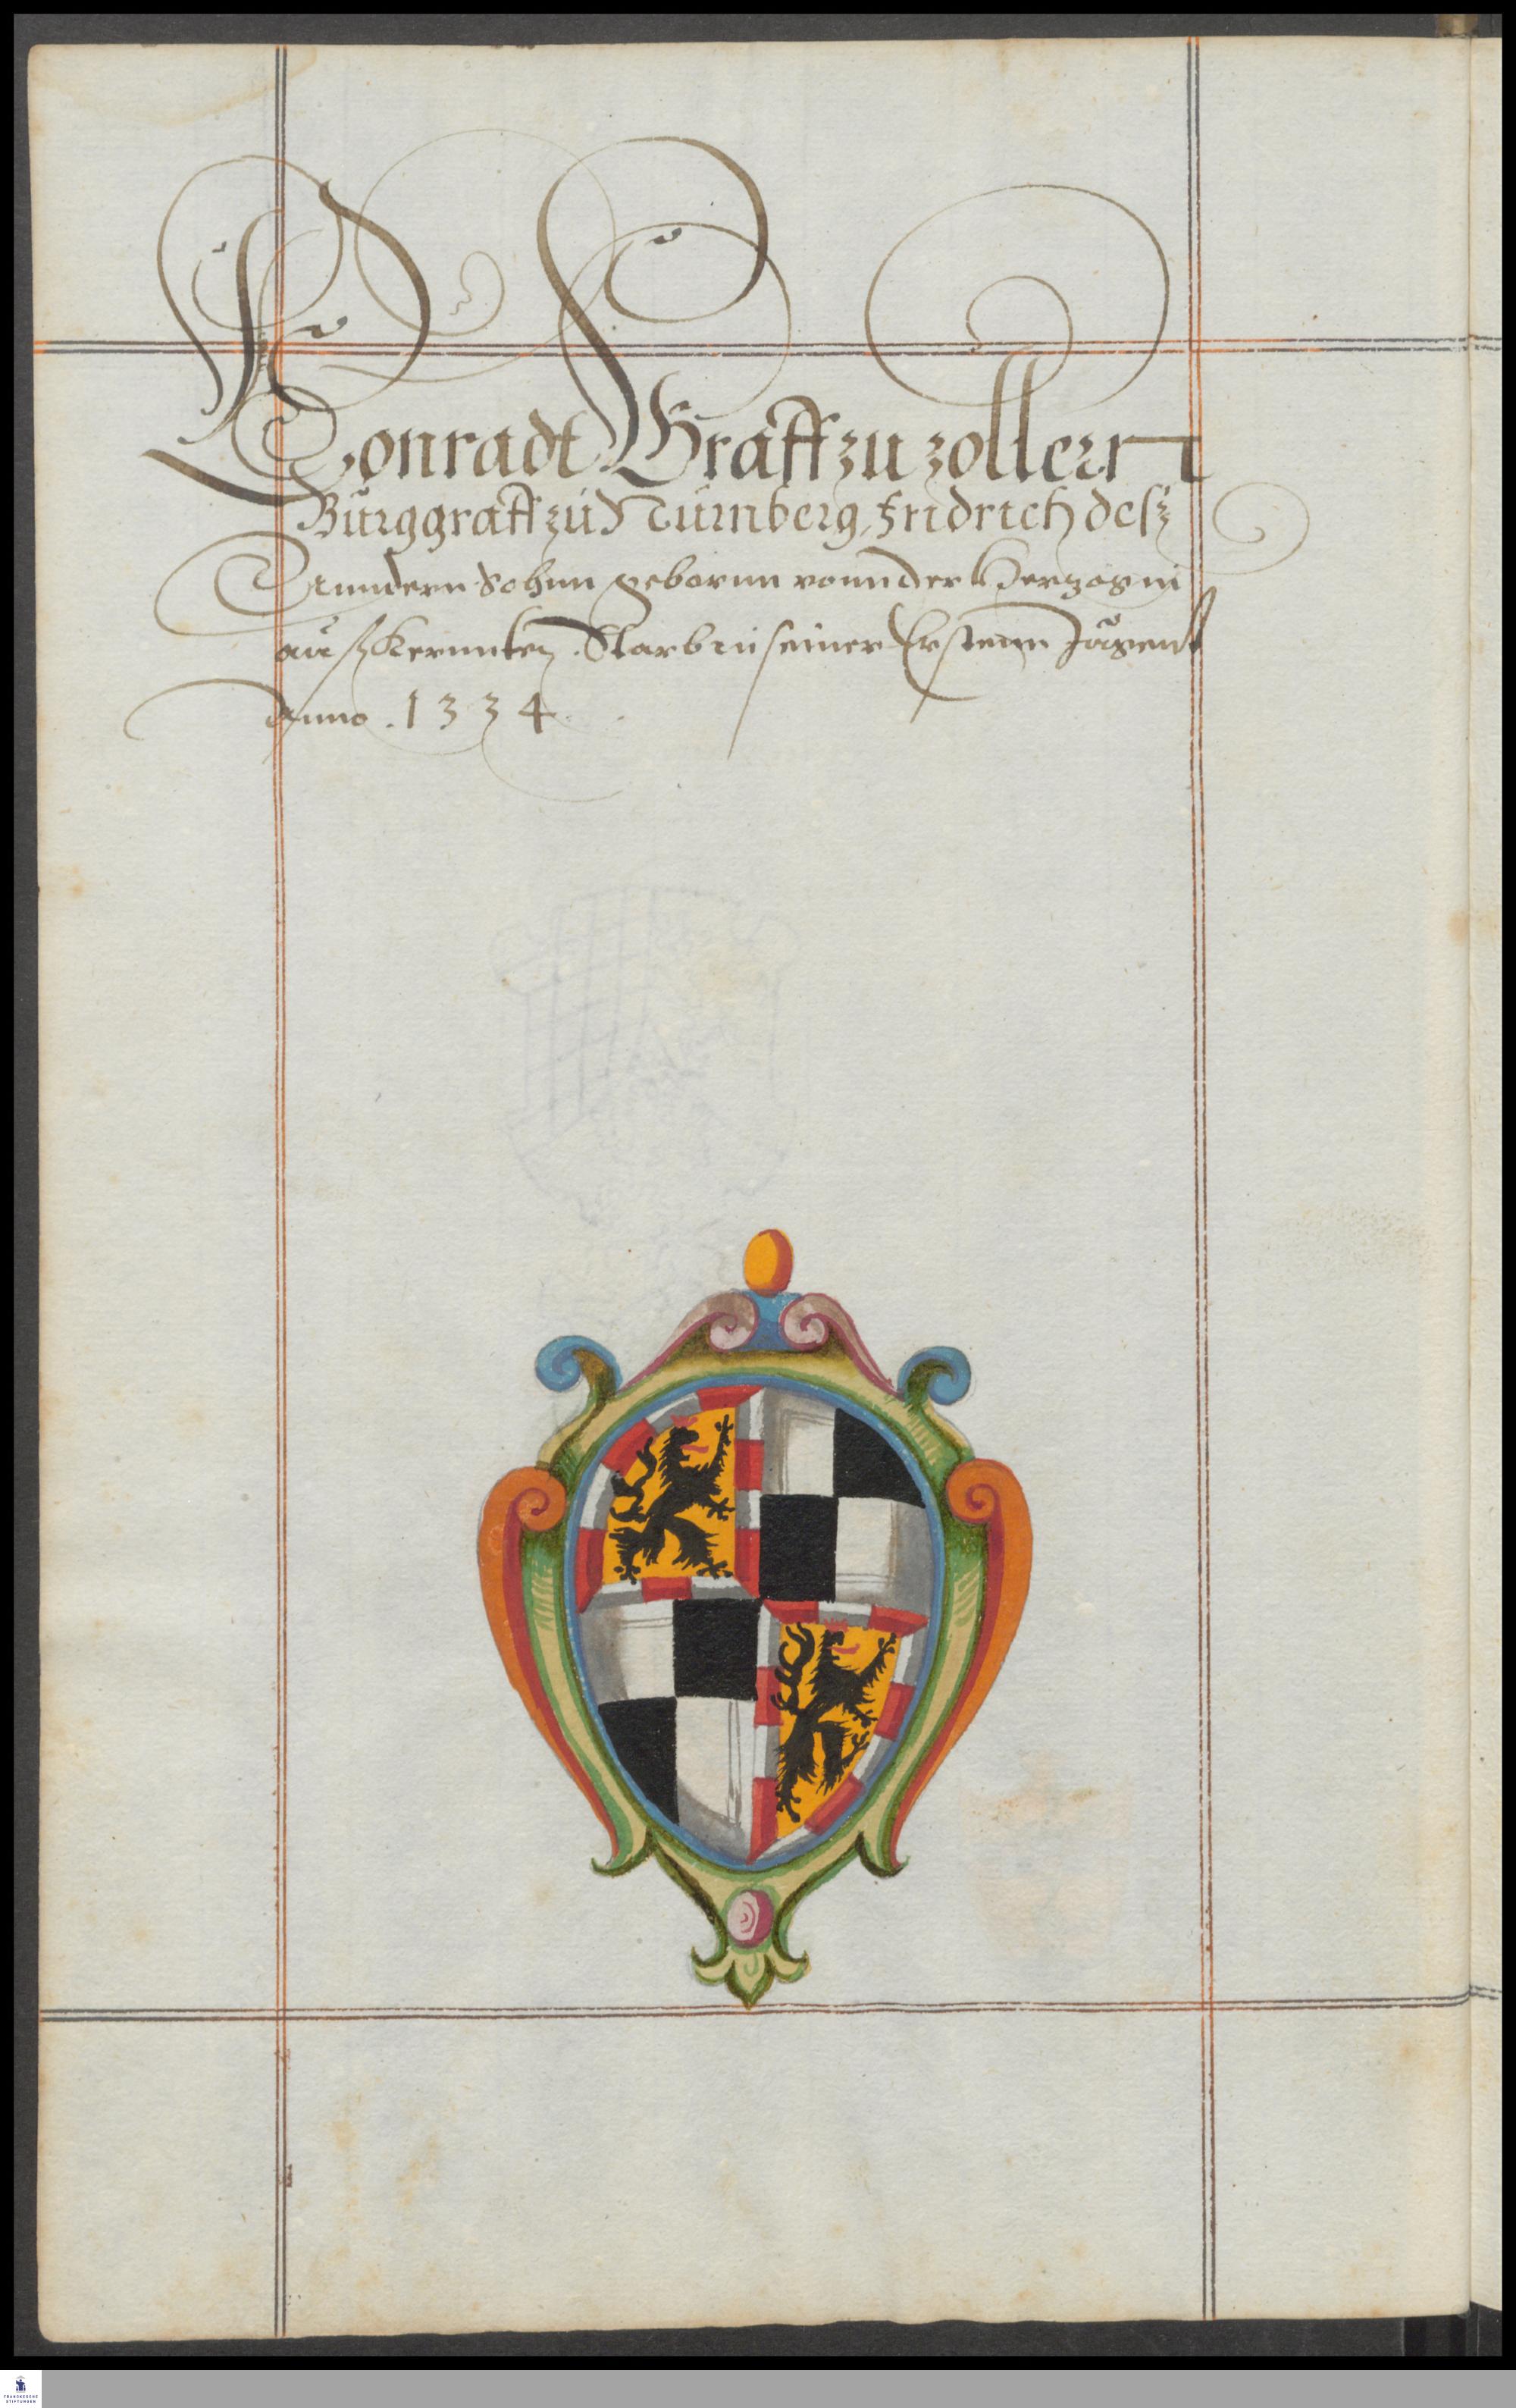 Conradt Graff zu zollern
Burggraff zu Nurnberg, Fridrich desz
Anndern Sohnn geborenn vonn der Herzogin
ausz Kernnten. Starb in seiner Erstenn Jugent
Anno . 1 3 3 4 .
FRANCKESCHE
STIFTUNGEN